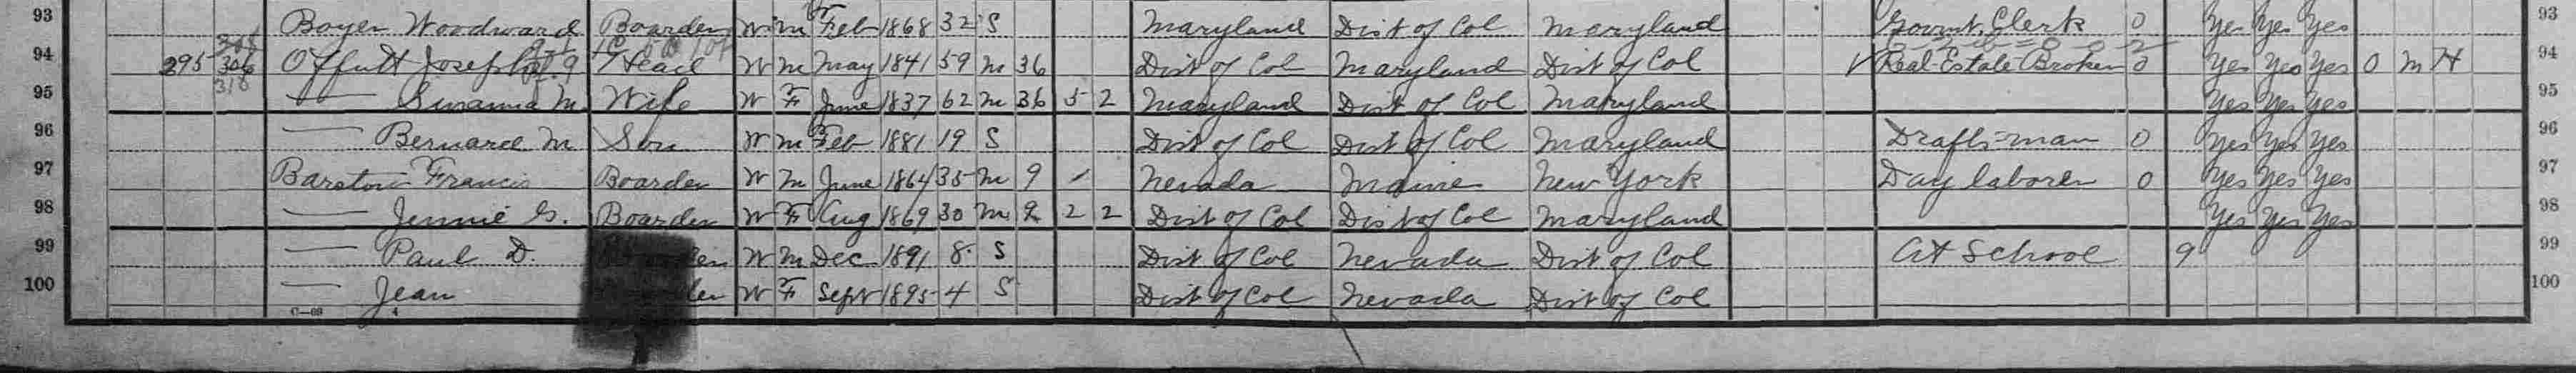 93 Boyer Woodward Boarder W M Feb 1868 32 S Maryland Dist of Col Maryland Govmt. Clerk 0 Yes Yes Yes 93
94 295 306 Offutt Joseph Head W M May 1841 59 M 36 Dist of Col Maryland Dist of Col Real-Estate Broker 0 Yes Yes Yes O M H 94
95 — Susanna M. Wife W F June 1837 62 M 36 5 2 Maryland Dist of Col Maryland Yes Yes Yes 95
96 — Bernard M Son W M Feb 1881 19 S Dist of Col Dist of Col Maryland Drafts-man 0 Yes Yes Yes 96
97 Barstow Francis Boarder W M June 1864 35 M 9 Nevada Maine New York Day laborer 0 Yes Yes Yes 97
98 — Jennie G. Boarder W F Aug 1869 30 M 9 2 2 Dist of Col Dist of Col Maryland Yes Yes Yes 98
99 — Paul D. Boarder W M Dec 1891 8 S Dist of Col Nevada Dist of Col At School 9 99
100 — Jean Boarder W F Sept 1895 4 S Dist of Col Nevada Dist of Col 100